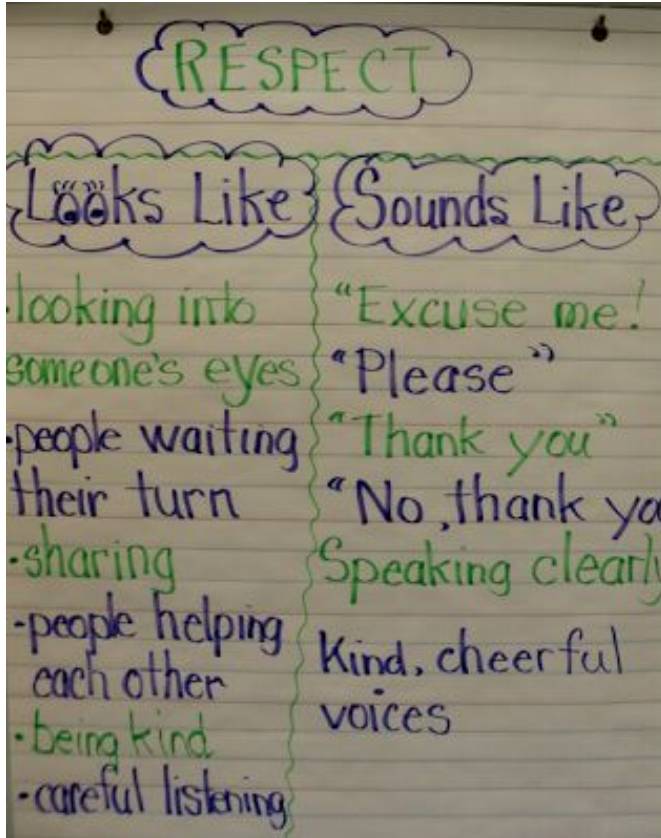 RESPECT
Looks Like
·looking into
someone's eyes
·people waiting
their turn
·sharing
·people helping
each other
·being kind
·careful listening
Sounds Like
"Excuse me!
"Please"
"Thank you"
"No, thank yo
Speaking clearly
Kind, cheerful
voices